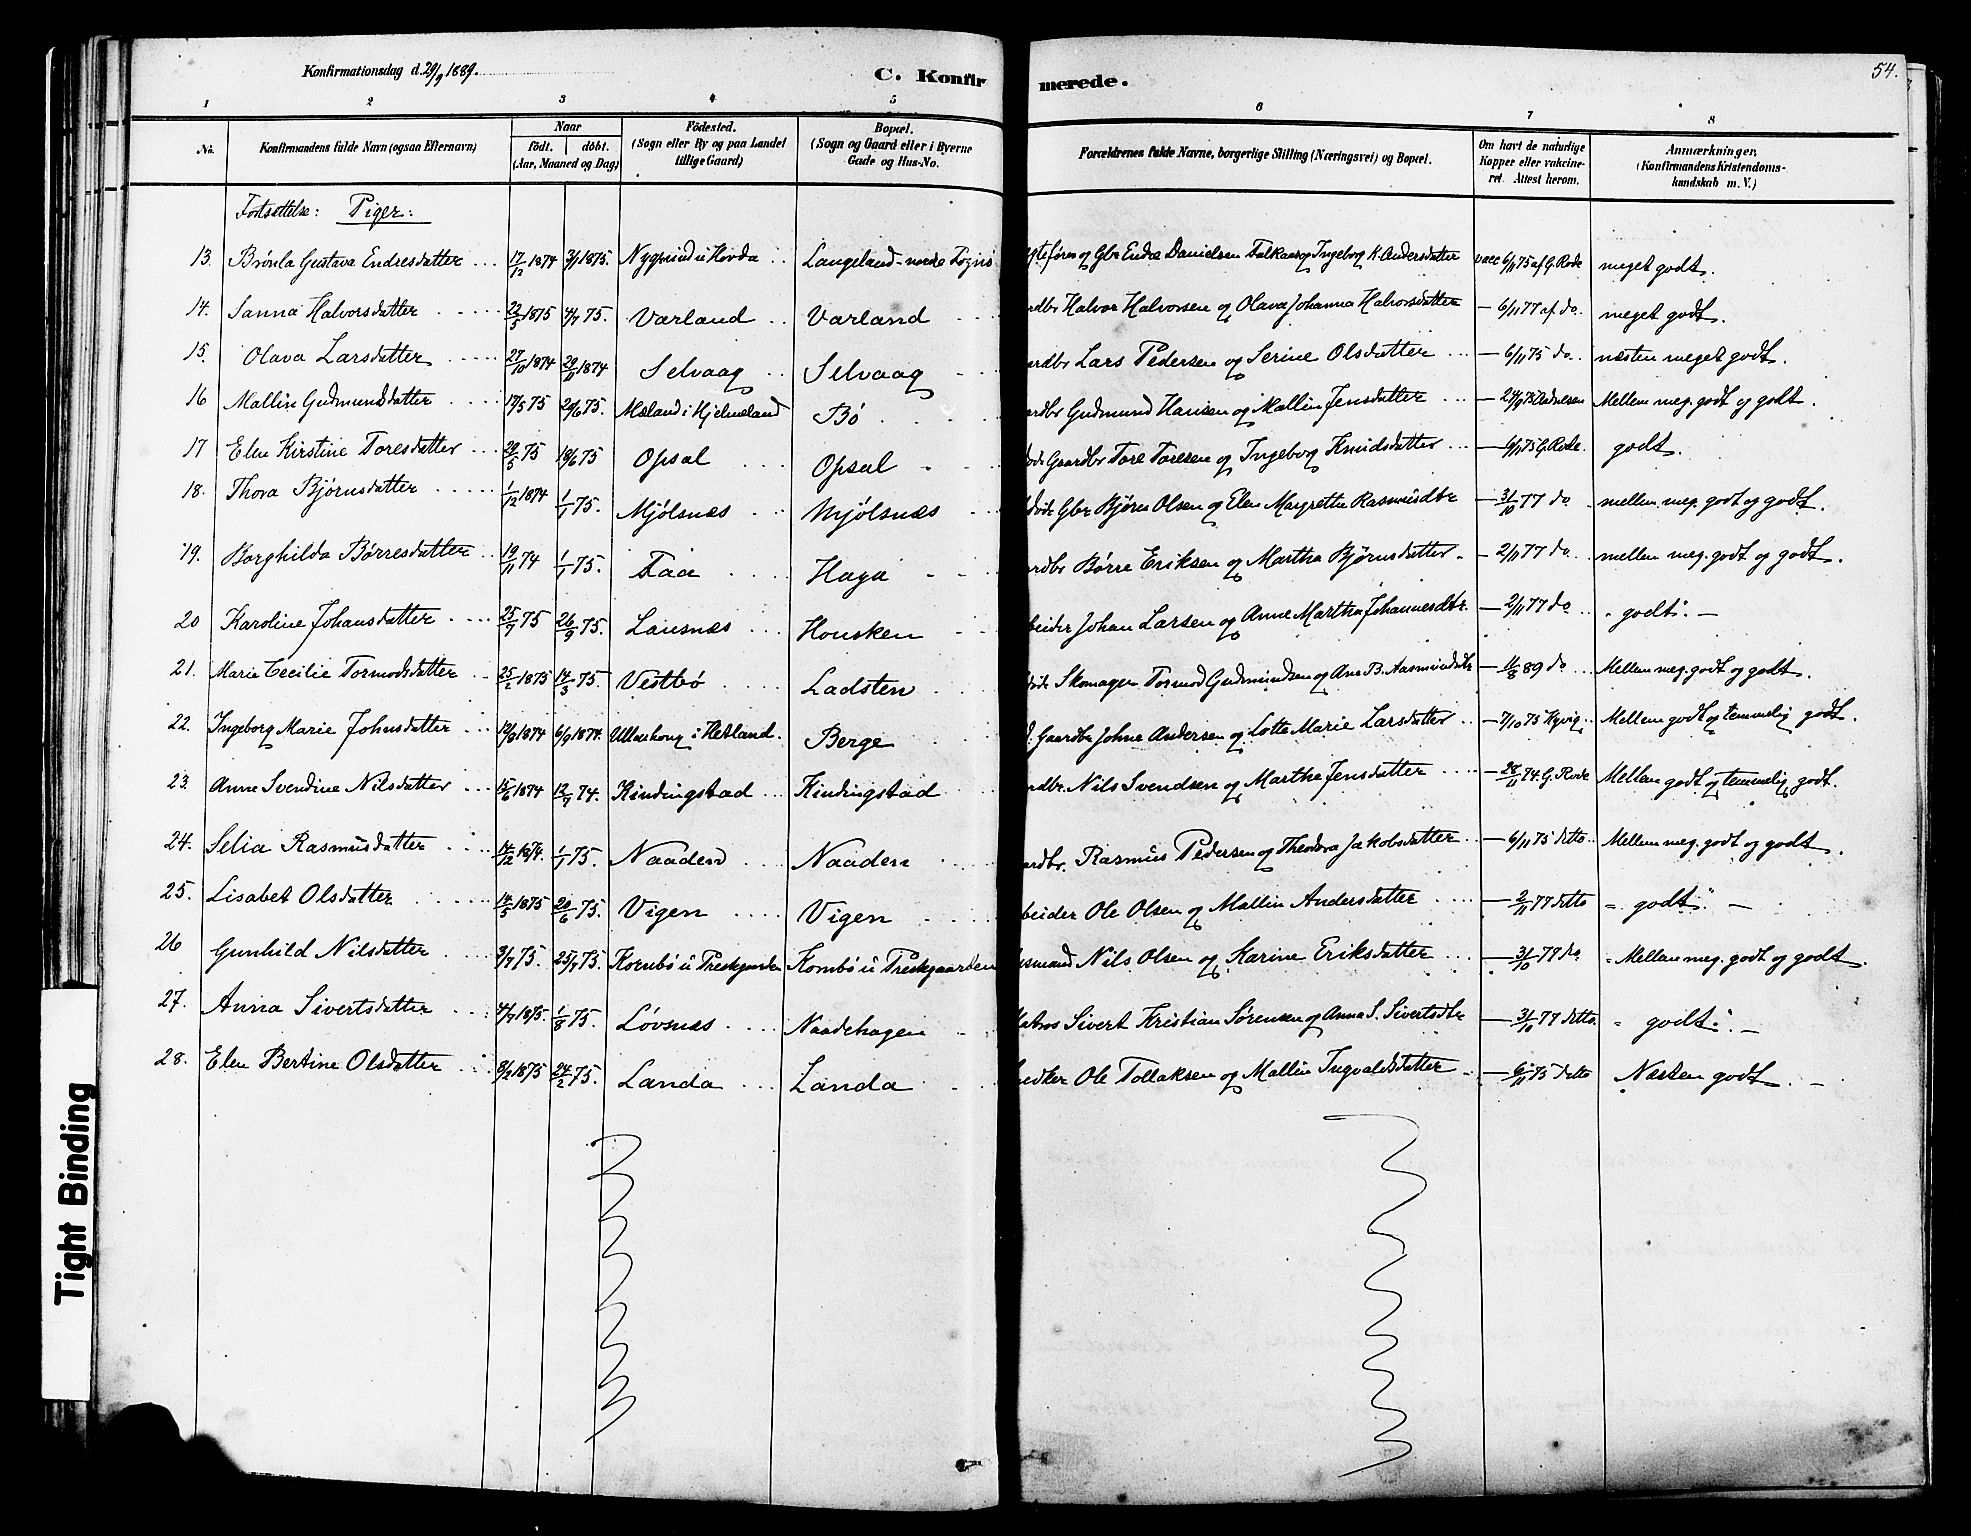 Konfirmationsdag d. 29/9 1889.
C. Konfirmerede.
54.
1 2 3 4 5 6 7 8
No. Konfirmandens fulde Navn (ogsaa Efternavn) Naar født. døbt. (Aar, Maaned og Dag) Fødested. (Sogn eller By og paa Landet tillige Gaard) Bopæl. (Sogn og Gaard eller i Byerne Gade og Hus-No. Forældrenes fulde Navne, borgerlige Stilling (Næringsvei) og Bopæl. Om havt de naturlige Kopper eller vakcineret. Attest herom. Anmærkninger, (Konfirmandens Kristendomskundskab m. V.)
Fortsættelse: Piger:
13. Brønla Gustava Endresdatter 17/12 1874 3/1 1875. Nygrund i Hovda Langeland - nordre Fogns Gbr Endre Danielsen Falkaas og Ingeborg K. Andersdatter vacc 6/11 75 af G. Rode meget godt.
14. Sanna Halvorsdatter 22/5 1875 4/7 75. Varland Varland ardbr Halvor Halvorsen og Olava Johanna Halvorsdatter — 6/11 77 af do meget godt.
15. Olava Larsdatter 27/10 1874 29/11 1874 Selvaag Selvaag ardbr Lars Pedersen og Serine Olsdatter — 6/11 75 do næsten meget godt.
16 Mallin Gudmundsdatter 17/5 75 20/6 75. Mæland i Hjelmeland Bø ardbr Gudmund Hansen og Mallin Jensdatter — Mellem meg. godt og godt.
17 Elen Kirstine Toresdatter 29/5 75 18/6 75 Opsal Opsal Gaardbr Tore Toresen og Ingeborg Knudsdatter — 6/11 75 G. Rode. godt.
18. Thora Bjørnsdatter 1/12 1874 1/1 75. Mjølsnæs Mjølsnæs Gbr Bjørn Olsen og Elen Margrethe Rasmusdtr — 31/10 77 do mellem meg. godt og godt.
19. Borghilda Børresdatter 19/11 74 1/1 75. Faa Haga ardbr Børre Eriksen og Martha Bjørnsdatter — 2/11 77 do mellem meg. godt og godt.
20 Karoline Johansdatter 25/9 75 26/9 75. Lausnæs Housken beider Johan Larsen og Anne Martha Johannesdtr. — 2/11 77 do „ godt". —
21. Marie Cecilie Tormodsdatter 25/2 1875 14/3 75. Vestbø Ladsten Skomager Tormod Gudmundsen og Ane B. Aasmundsdtr — 11/8 89 do Mellem meg. godt og godt.
22. Ingeborg Marie Johnsdatter 12/8 1874 6/9 1874. Ullenhoug i Hetland. Berge Gaardbr Johne Andersen og Lotte Marie Larsdatter — 7/10 75 Kyvig Mellem godt og temmelig godt.
23. Anne Svendine Nilsdatter 15/6 1874 12/7 74. Kindingstad Kindingstad ardbr. Nils Svendsen og Marthe Jensdatter — 28/11 74. G. Rode Mellem godt og temmelig godt.
24. Selia Rasmusdatter 14/12 1874. 1/1 75. Naaden Naaden ardbr. Rasmus Pedersen og Theodora Jakobsdatter — 6/11 75 detto Mellem meg. godt og godt.
25. Lisabet Olsdatter 14/5 1875 20/6 75. Vigen Vigen beider Ole Olsen og Mallin Andersdatter — 2/11 77 detto „ godt". —
26 Gunhild Nilsdatter 3/7 75. 25/7 75 Kornbø u Prestgaarden Kornbø u Prestgaarden usmand Nils Olsen og Karine Eriksdatter — 31/10 79 do Mellem meg. godt og godt.
27. Anna Sivertsdatter 4/7 1875. 1/8 75. Løvsnæs Naadehagen Matros Sivert Kristian Sørensen og Anna S. Sivertsdtr — 31/10 77 detto „ godt". —
28. Elen Bertine Olsdatter 8/2 1875 24/2 75. Landa Landa Ole Tollaksen og Mallin Ingvaldsdatter — 6/11 75 detto Næsten godt. —
Tight Binding